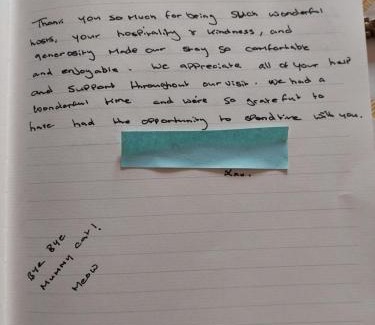 Thank you so much for being such wonderful
hosts, your hospitality & kindness, and
generosity made our stay so comfortable
and enjoyable. We appreciate all of your help
and support throughout our visit. We had a
wonderful time and were so grateful to
have had the opportunity to spend time with you.
BYE BYE
MUMMY cat!
Meow